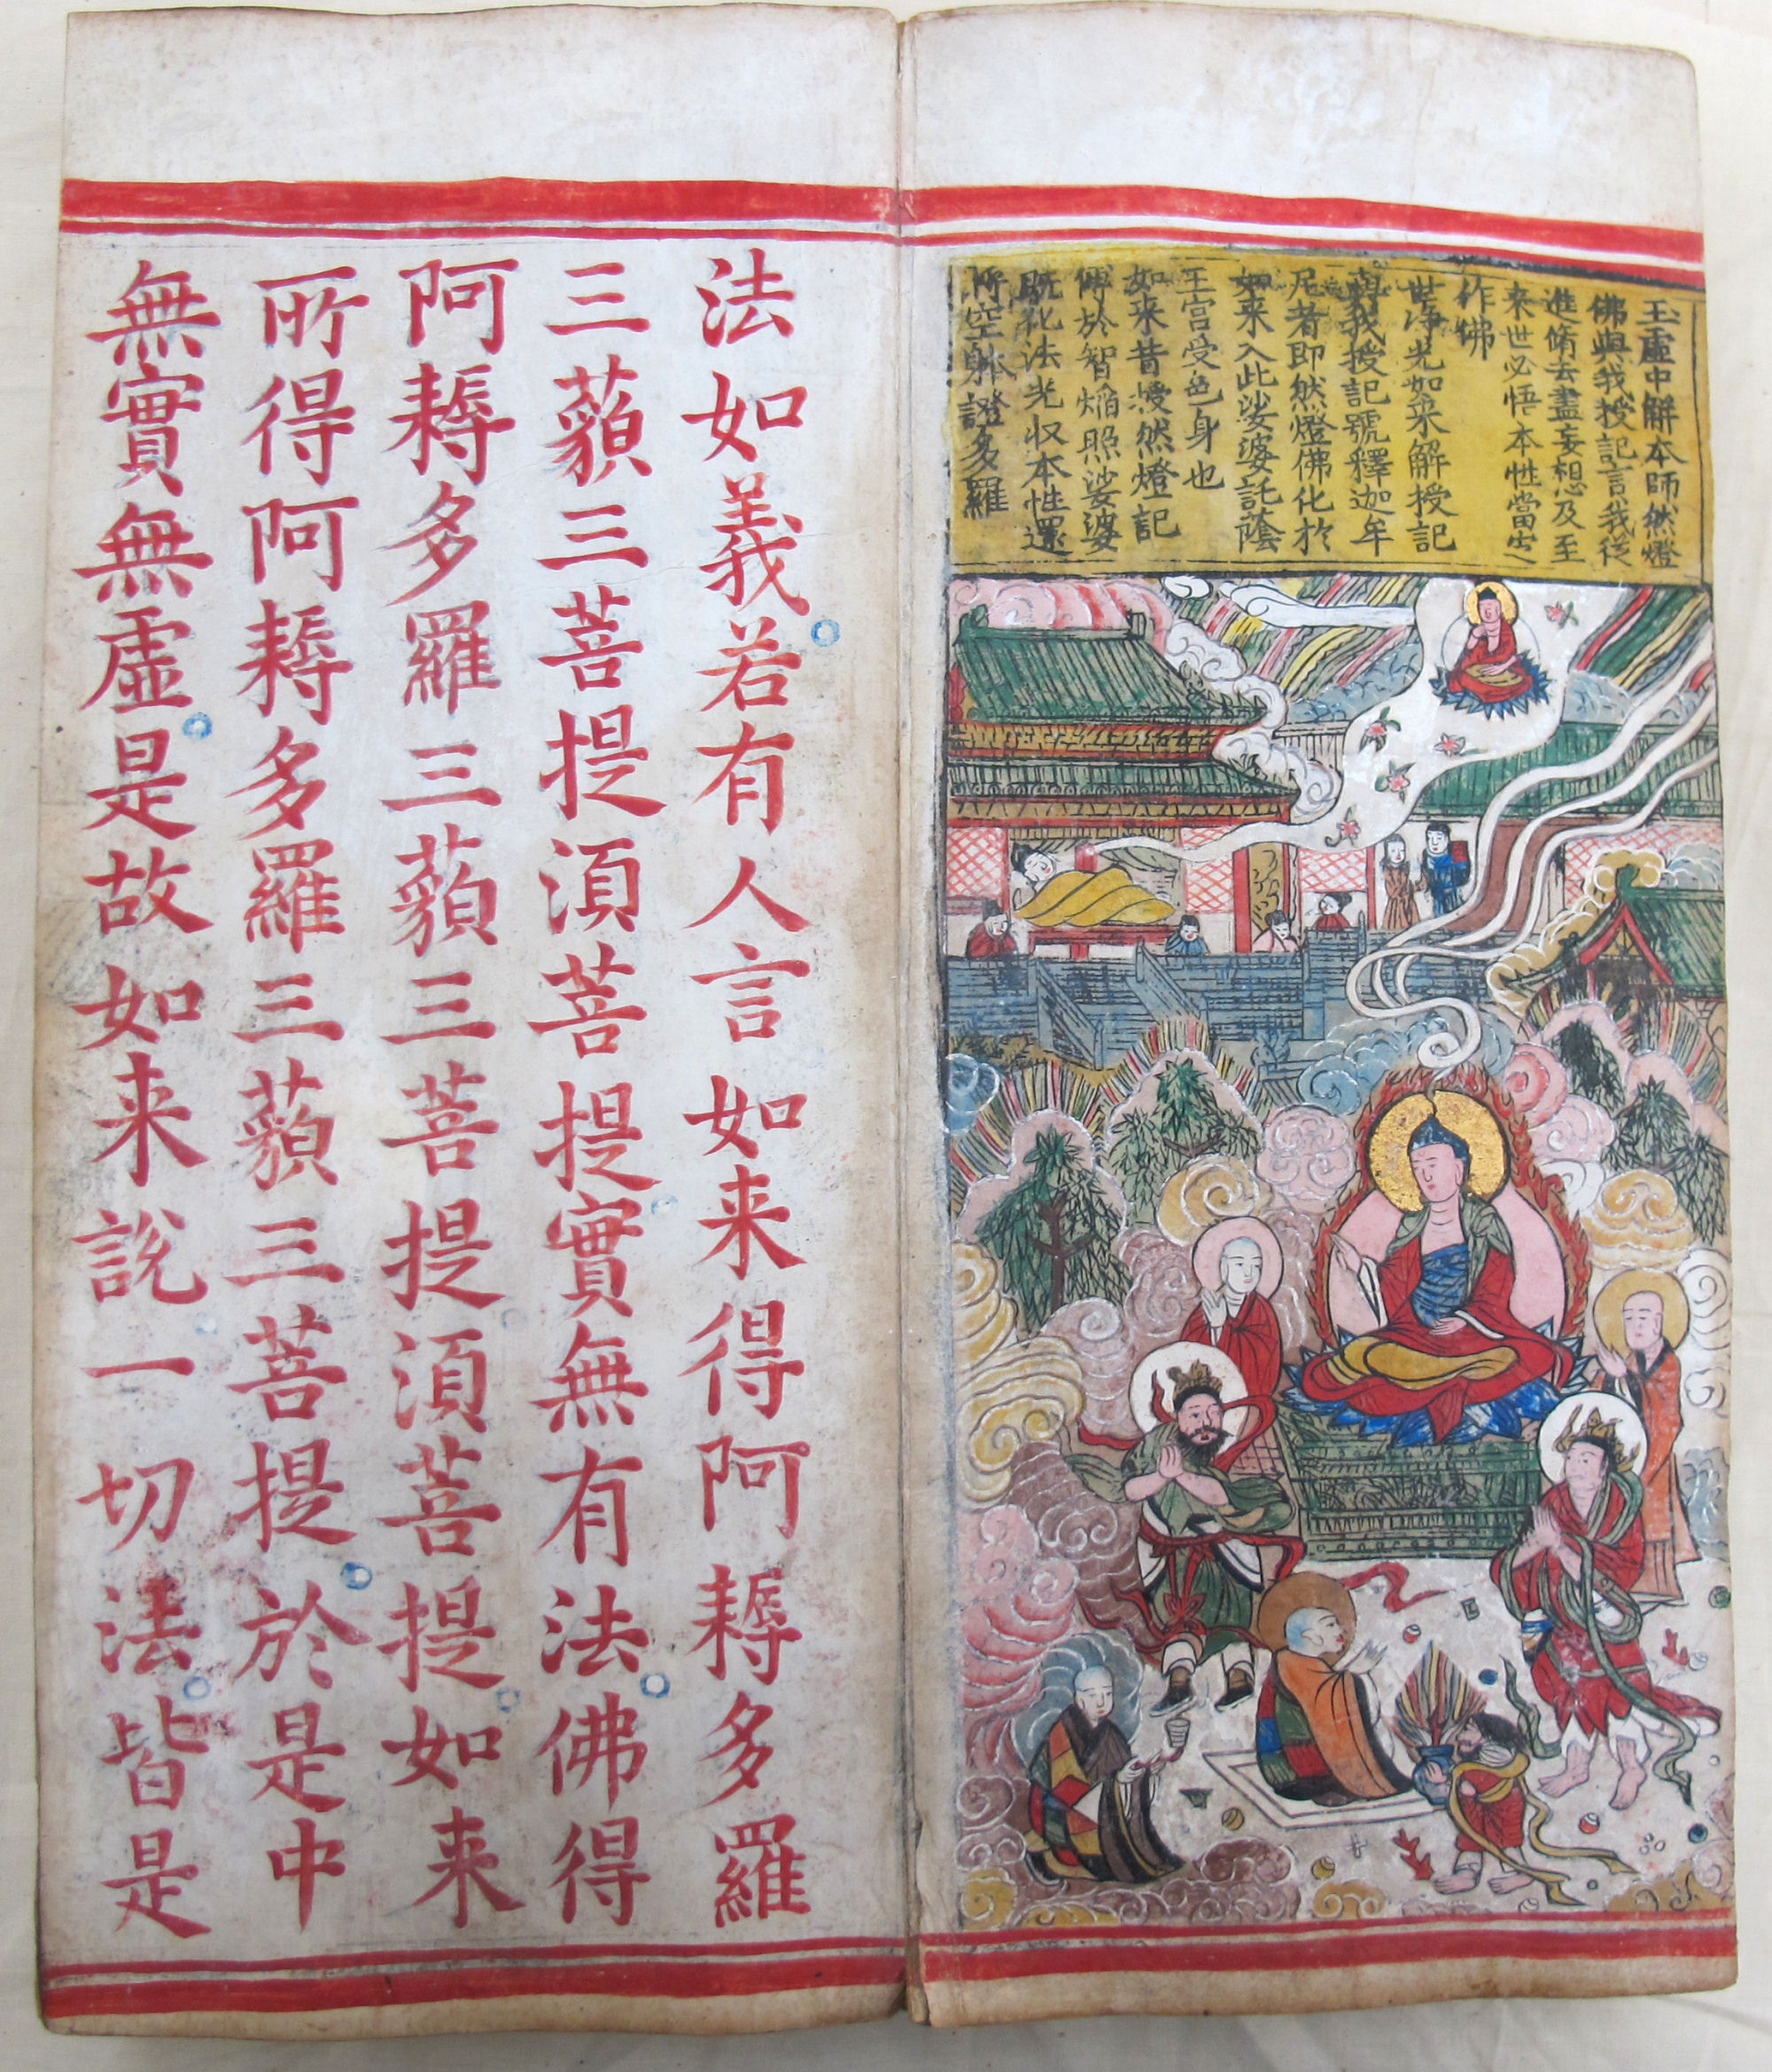 玉虛中解本師然燈
佛與我授記言我從
進脩去盡妄想及至
来世必悟本性當㝎
作佛
世淨光如来解授記
我授記號釋迦牟
尼者即然燈佛化於
如来入此娑婆託蔭
王宮受色身也
如来昔燰然燈記
傳於智焔照娑婆
既礼法光収本性還
將空躰證多羅
法如義若有人言如来得阿耨多羅
三藐三菩提湏菩提實無有法佛得
阿耨多羅三藐三菩提湏菩提如来
所得阿耨多羅三藐三菩提於是中
無實無虛是故如来說一切法皆是